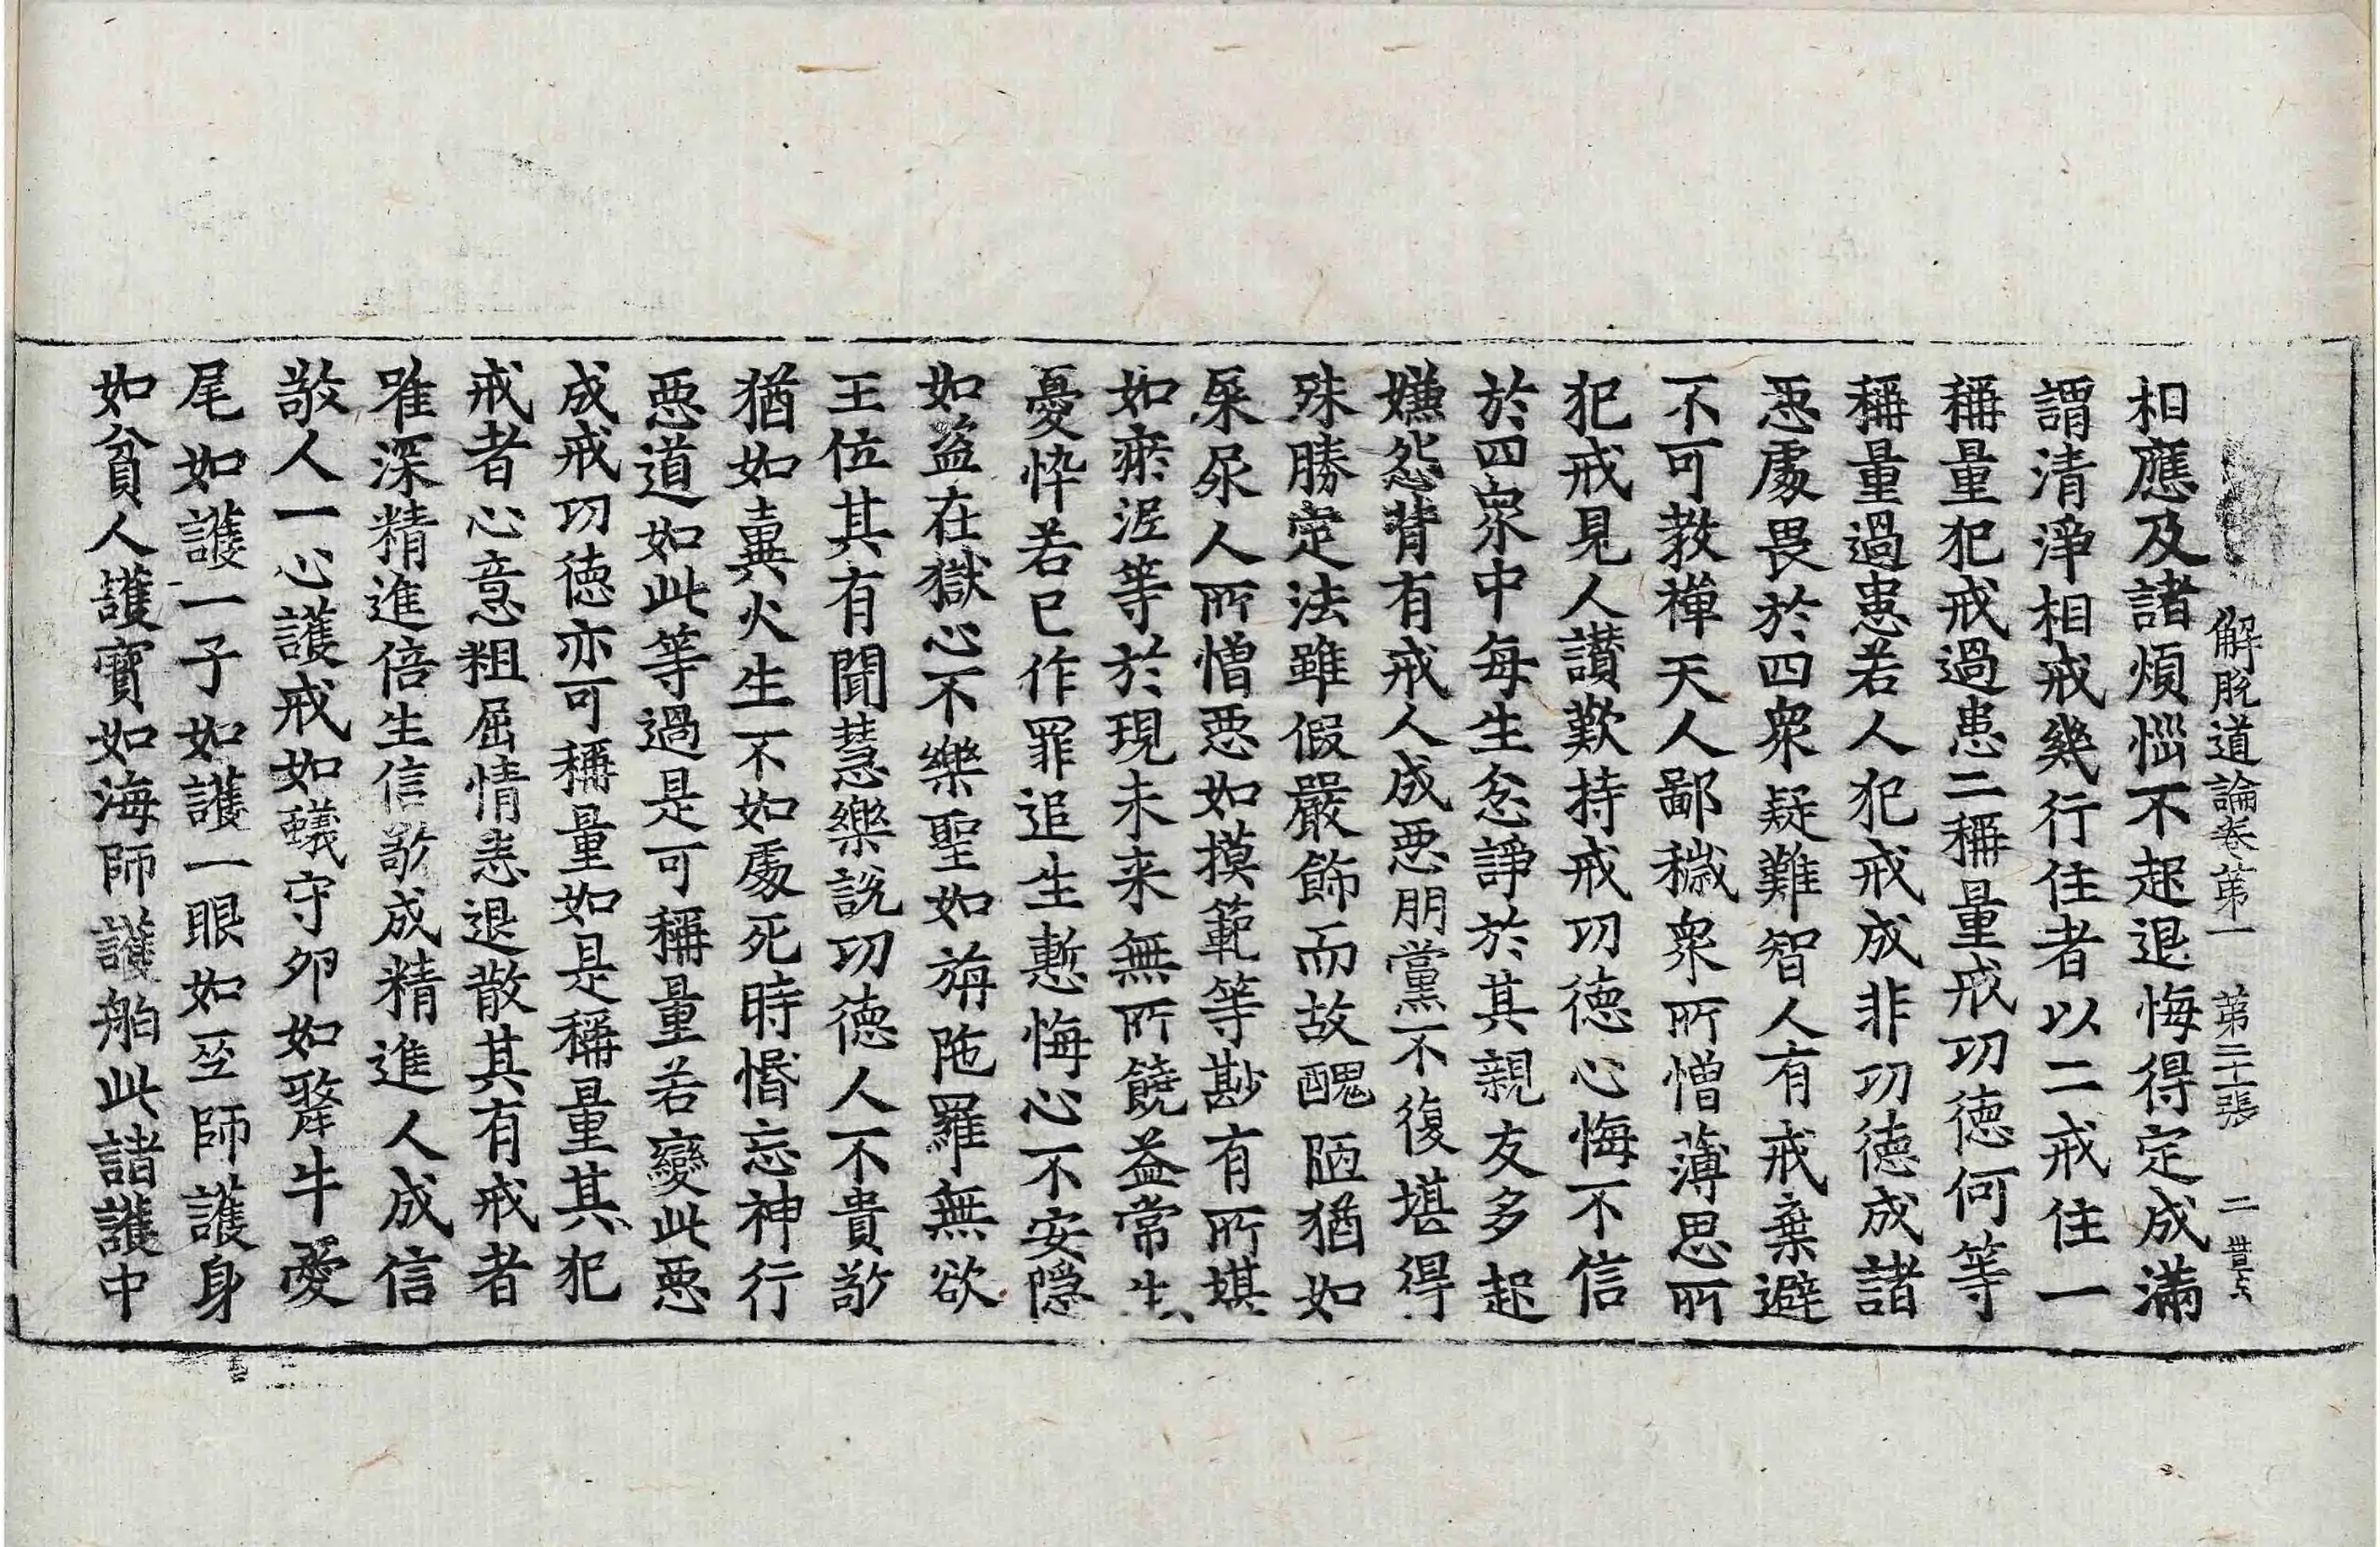 解脫道論卷第一　第二十張　二
相應及諸煩惱不起退悔得定成滿
謂清淨相戒幾行住者以二戒住一
稱量犯戒過患二稱量戒功德何等
稱量過患若人犯戒成非功德成諸
惡處畏於四衆疑難智人有戒棄避
不可教禪天人鄙穢衆所憎薄思所
犯戒見人讃歎持戒功德心悔不信
於四衆中每生忿諍於其親友多起
嫌怨背有戒人成惡朋黨不復堪得
殊勝定法雖假嚴飾而故醜陋猶如
屎尿人所憎惡如摸範等尠有所堪
如淤泥等於現未来無所饒益常生
憂悴若已作罪追生慙悔心不安隱
如盜在獄心不樂聖如旃陁羅無欲
王位其有聞慧樂說功德人不貴敬
猶如糞火生不如處死時惛忘神行
惡道如此等過是可稱量若變此惡
成戒功德亦可稱量如是稱量其犯
戒者心意粗屈情恚退散其有戒者
唯深精進倍生信敬成精進人成信
敬人一心護戒如蟻守卵如犛牛愛
尾如護一子如護一眼如巫師護身
如貧人護寶如海師護舶此諸護中